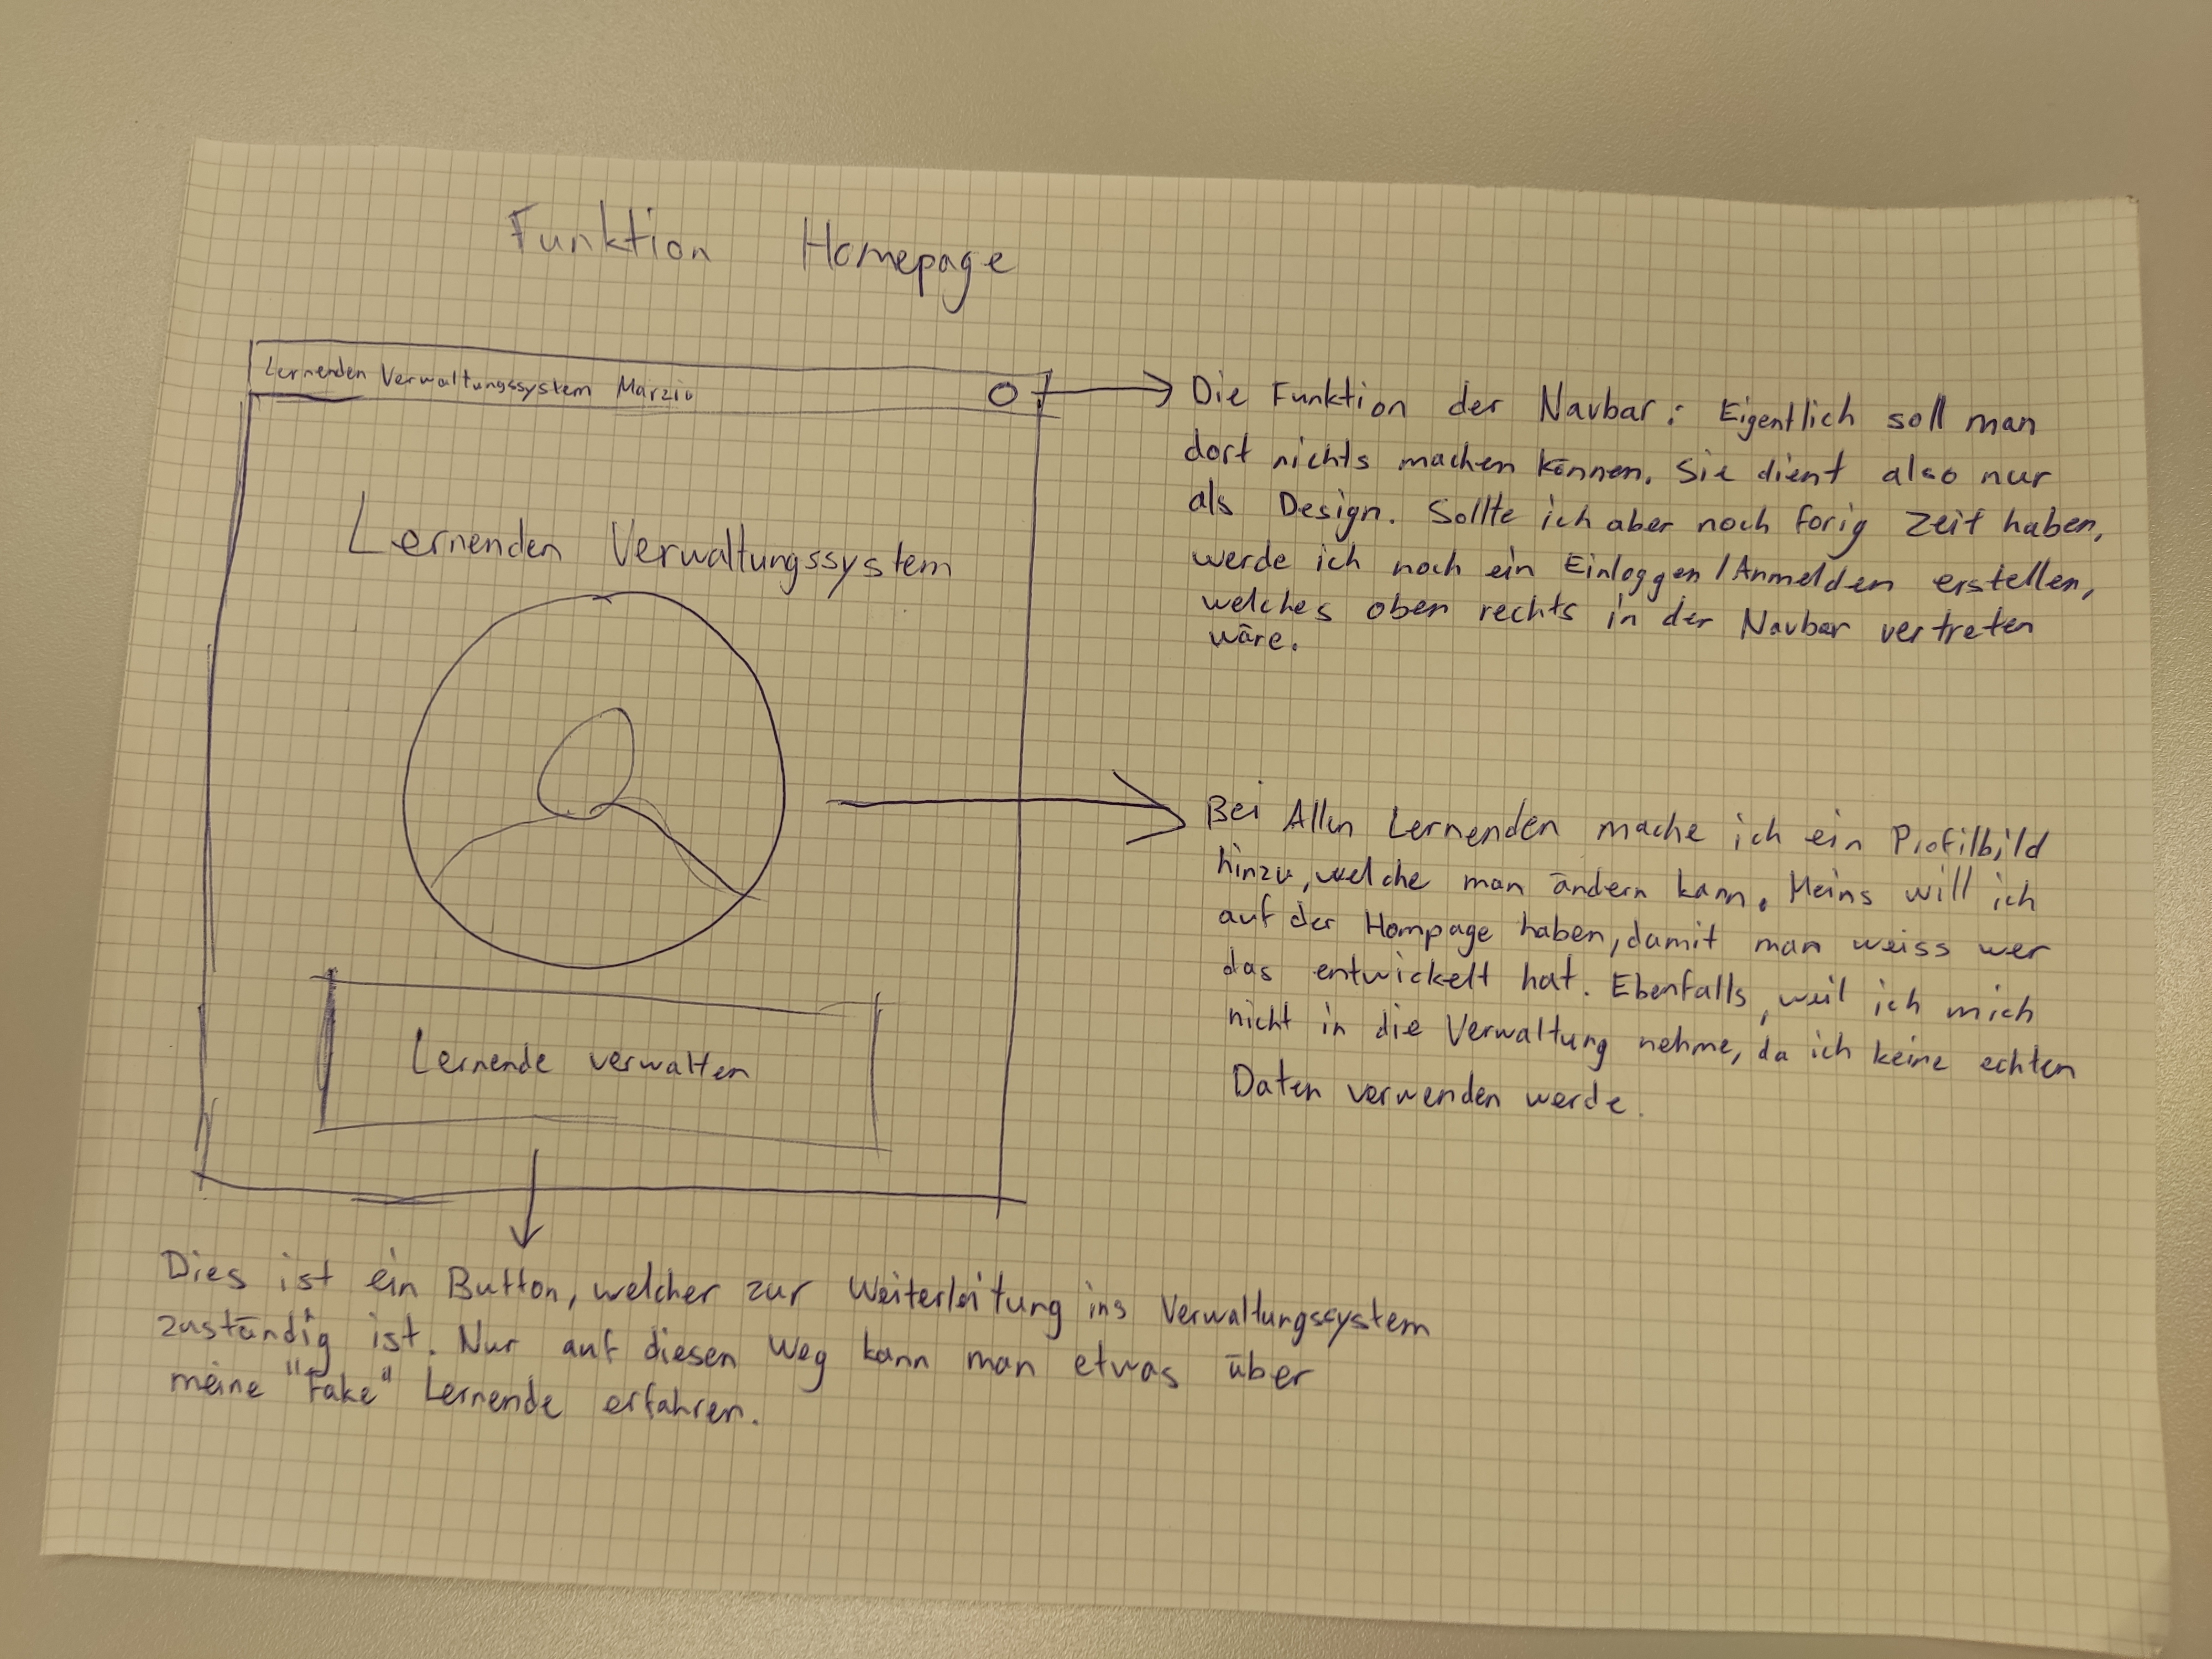 Funktion Homepage
Lernenden Verwaltungssystem Marzio
Lernenden Verwaltungssystem
Lernende verwalten
Die Funktion der Navbar: Eigentlich soll man
dort nichts machen können. Sie dient also nur
als Design. Sollte ich aber noch forig Zeit haben,
werde ich noch ein Einloggen/Anmelden erstellen,
welches oben rechts in der Navbar vertreten
wäre.
Bei Allen Lernenden mache ich ein Profilbild
hinzu, welche man ändern kann. Meins will ich
auf der Hompage haben, damit man weiss wer
das entwickelt hat. Ebenfalls, weil ich mich
nicht in die Verwaltung nehme, da ich keine echten
Daten verwenden werde.
Dies ist ein Button, welcher zur Weiterleitung ins Verwaltungssystem
zuständig ist. Nur auf diesen Weg kann man etwas über
meine "Fake" Lernende erfahren.